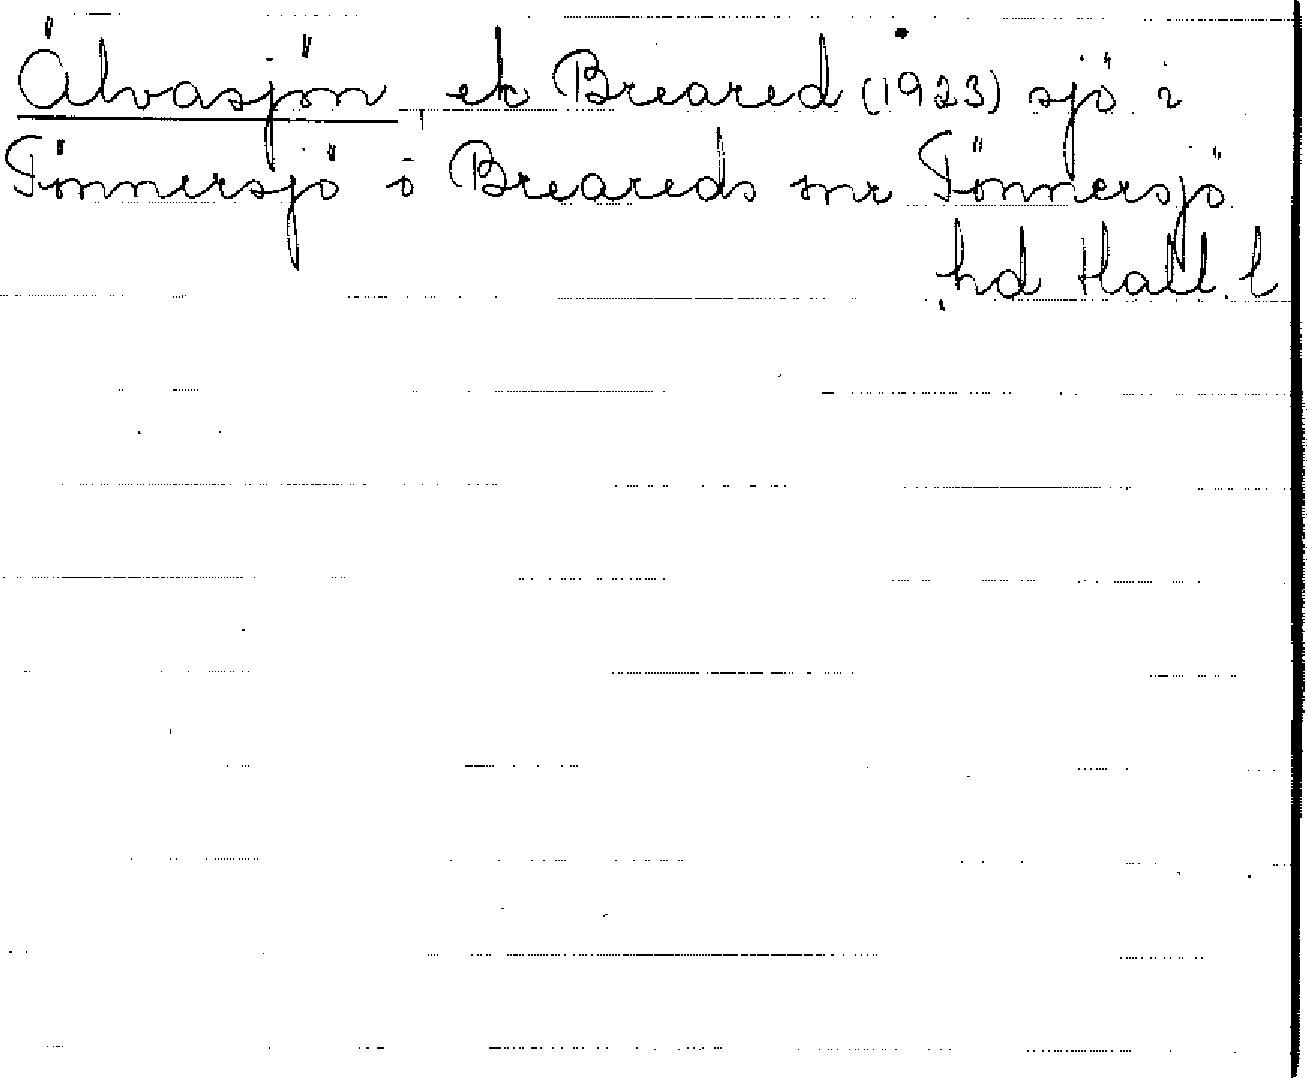 Älvasjön, ek Breared (1923) sjö i
Tönnersjö o Breareds snr Tönnersjö
hd Hall. l